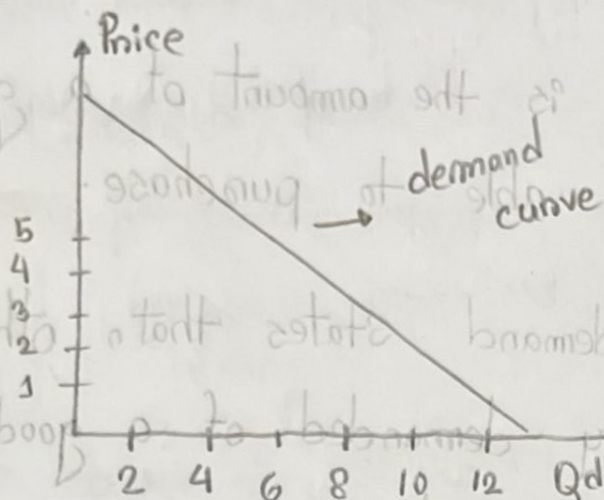 Price
demand
curve
5
4
3
2
1
2 4 6 8 10 12 Qd